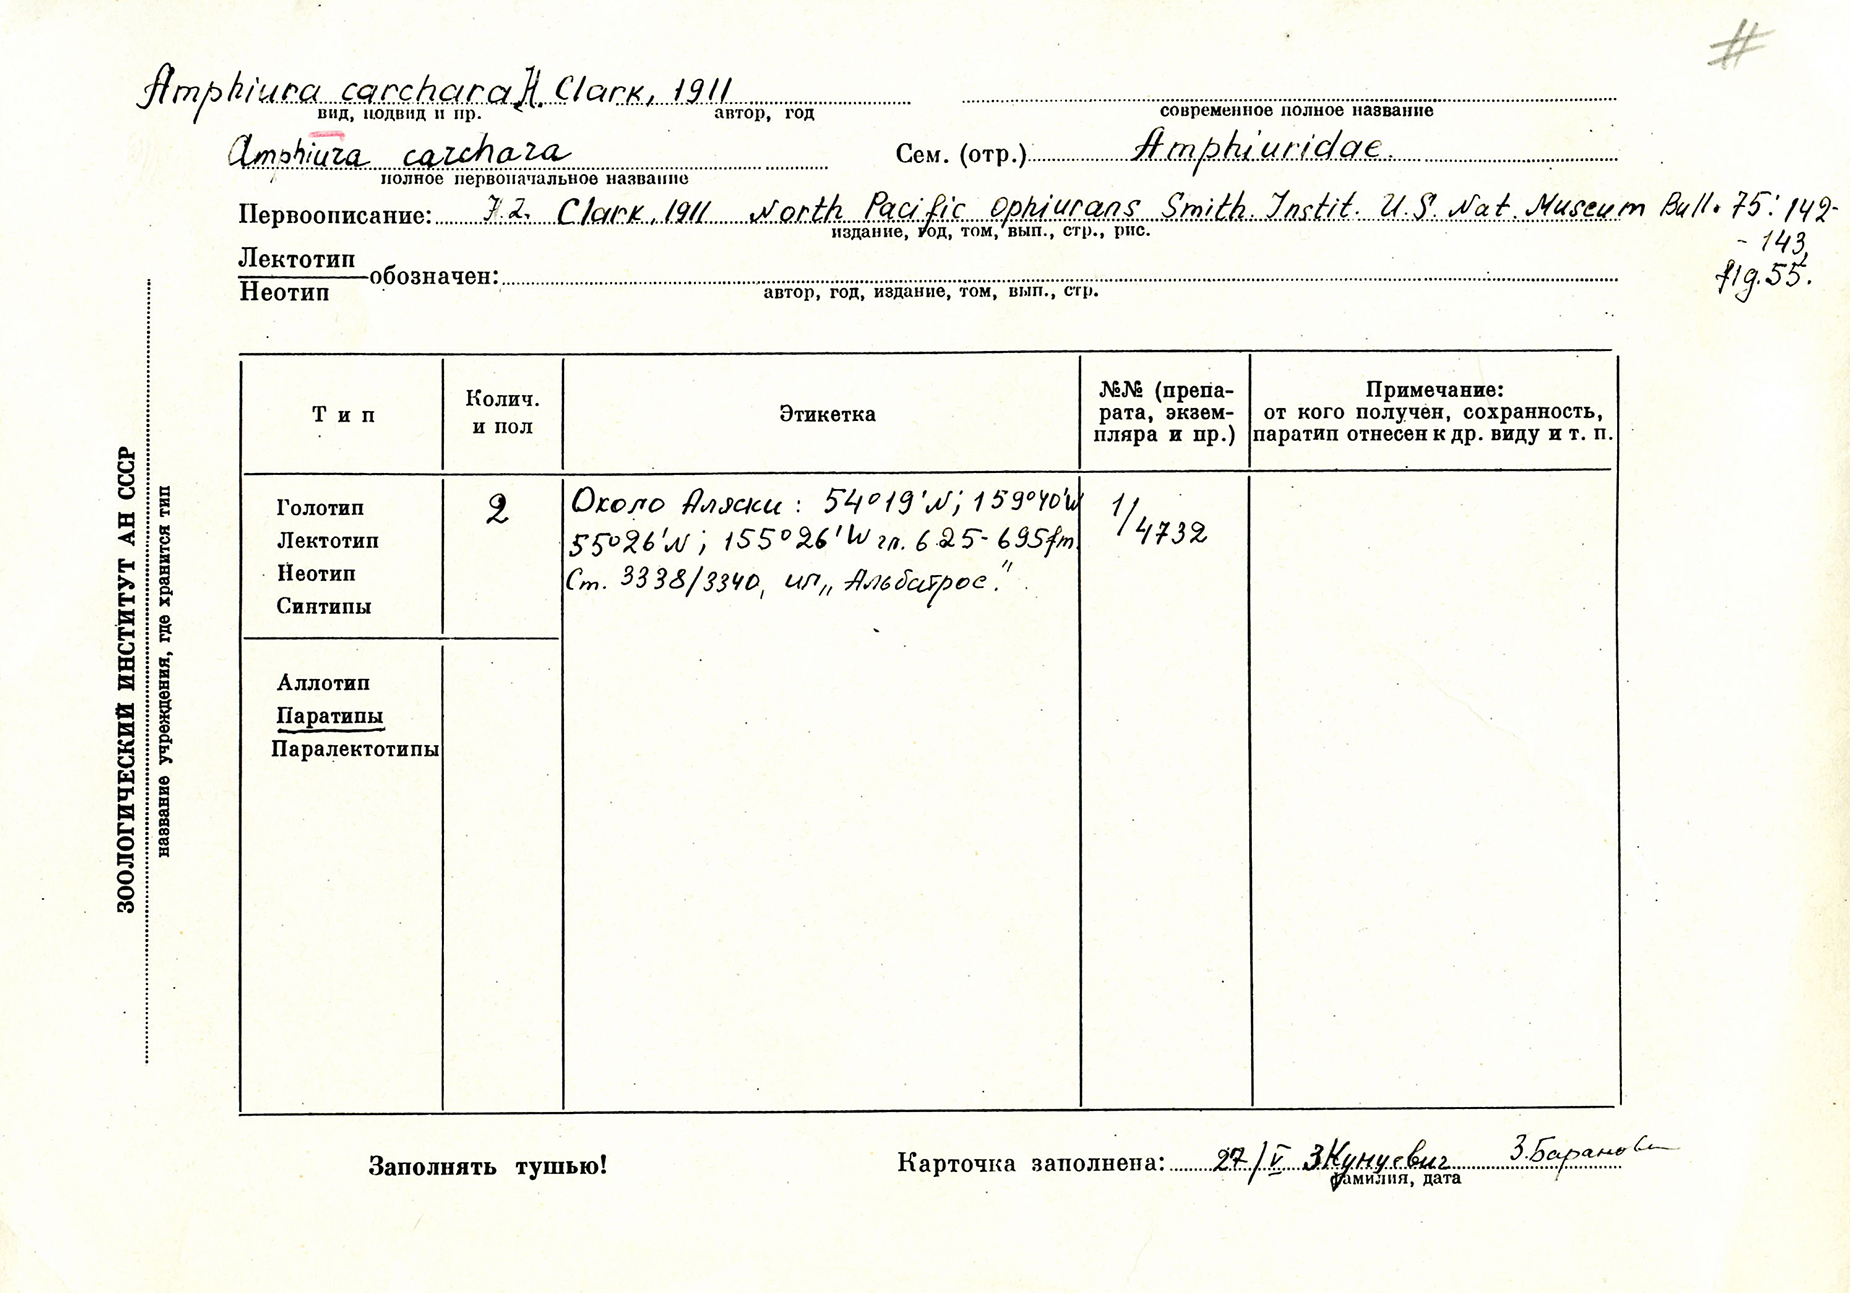 #
Amphiura carchara H. Clark, 1911
вид, подвид и пр. автор, год
современное полное название
Amphiura carchara
полное первоначальное название
Сем. (отр.) Amphiuridae
Первоописание: Clark, 1911 North Pacific Ophiurans Smith. Instit. U.S. Nat. Museum Bull. 75: 142-
- 143,
fig. 55.
издание, год, том, вып., стр., рис.
Лектотип
Неотип
обозначен:
автор, год, издание, том, вып., стр.
ЗООЛОГИЧЕСКИЙ ИНСТИТУТ АН СССР
название учреждения, где хранится тип
Тип
Колич.
и пол
Этикетка
№№ (препа-
рата, экзем-
пляра и пр.)
Примечание:
от кого получен, сохранность,
паратип отнесен к др. виду и т. п.
Голотип
Лектотип
Неотип
Синтипы
2
Около Аляски: 54°19'N; 159°40'W
55°26'N; 155°26'W гл. 625-695fm.
Ст. 3338/3340, „Альбатрос."
1/4732
Аллотип
Паратипы
Паралектотипы
Заполнять тушью!
Карточка заполнена: 27/V З.Кунцевич З.Баранова
фамилия, дата